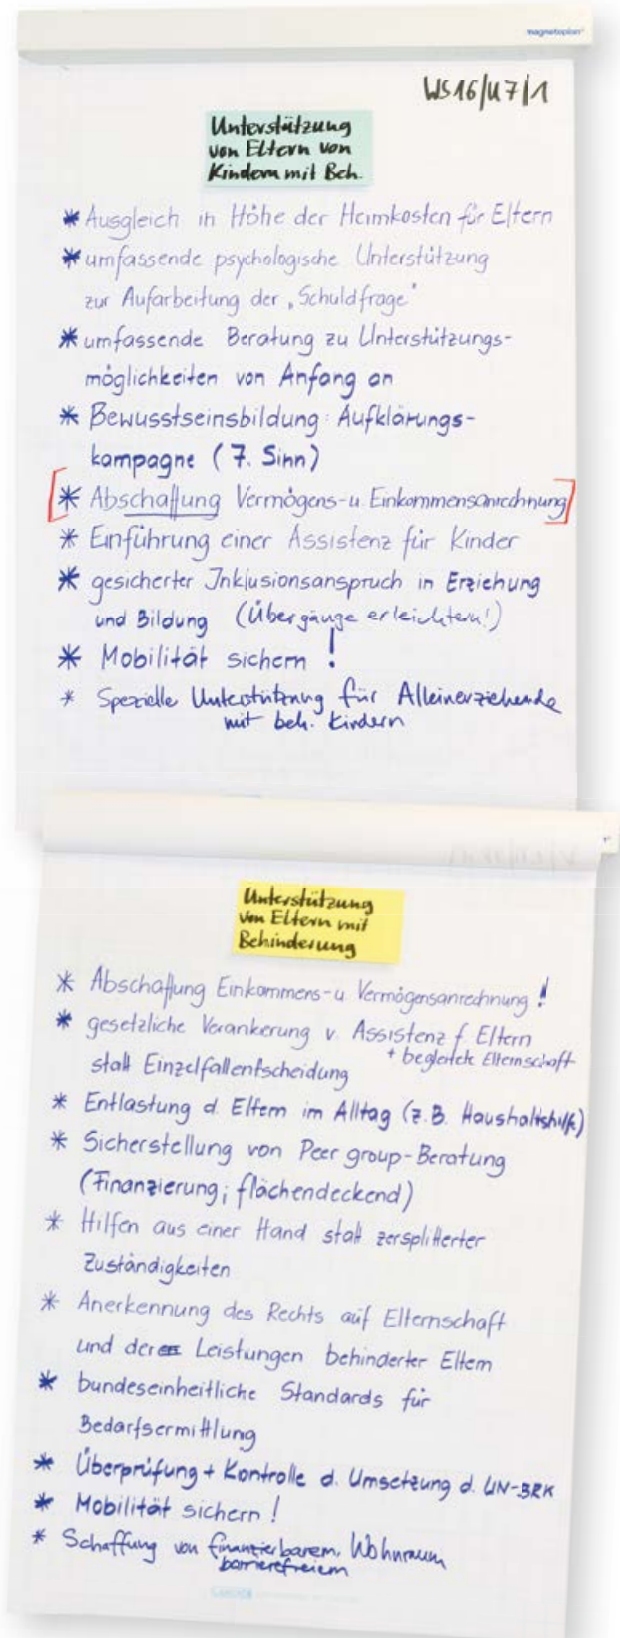 magnetoplan®
WS16/U7/1
Unterstützung
von Eltern von
Kindern mit Beh.
* Ausgleich in Höhe der Heimkosten für Eltern
* umfassende psychologische Unterstützung
zur Aufarbeitung der "Schuldfrage"
* umfassende Beratung zu Unterstützungs-
möglichkeiten von Anfang an
* Bewusstseinsbildung: Aufklärungs-
kampagne (7. Sinn)
[* Abschaffung Vermögens- u. Einkommensanrechnung]
* Einführung einer Assistenz für Kinder
* gesicherter Inklusionsanspruch in Erziehung
und Bildung (Übergänge erleichtern!)
* Mobilität sichern !
* Spezielle Unterstützung für Alleinerziehende
mit beh. Kindern
Unterstützung
von Eltern mit
Behinderung
* Abschaffung Einkommens- u. Vermögensanrechnung !
* gesetzliche Verankerung v. Assistenz f. Eltern
+ begleitete Elternschaft
statt Einzelfallentscheidung
* Entlastung d. Eltern im Alltag (z.B. Haushaltshilfe)
* Sicherstellung von Peer group-Beratung
(Finanzierung; flächendeckend)
* Hilfen aus einer Hand statt zersplitterter
Zuständigkeiten
* Anerkennung des Rechts auf Elternschaft
und der Leistungen behinderter Eltern
* bundeseinheitliche Standards für
Bedarfsermittlung
* Überprüfung + Kontrolle d. Umsetzung d. UN-BRK
* Mobilität sichern !
* Schaffung von finanzierbarem, Wohnraum
barrierefreiem